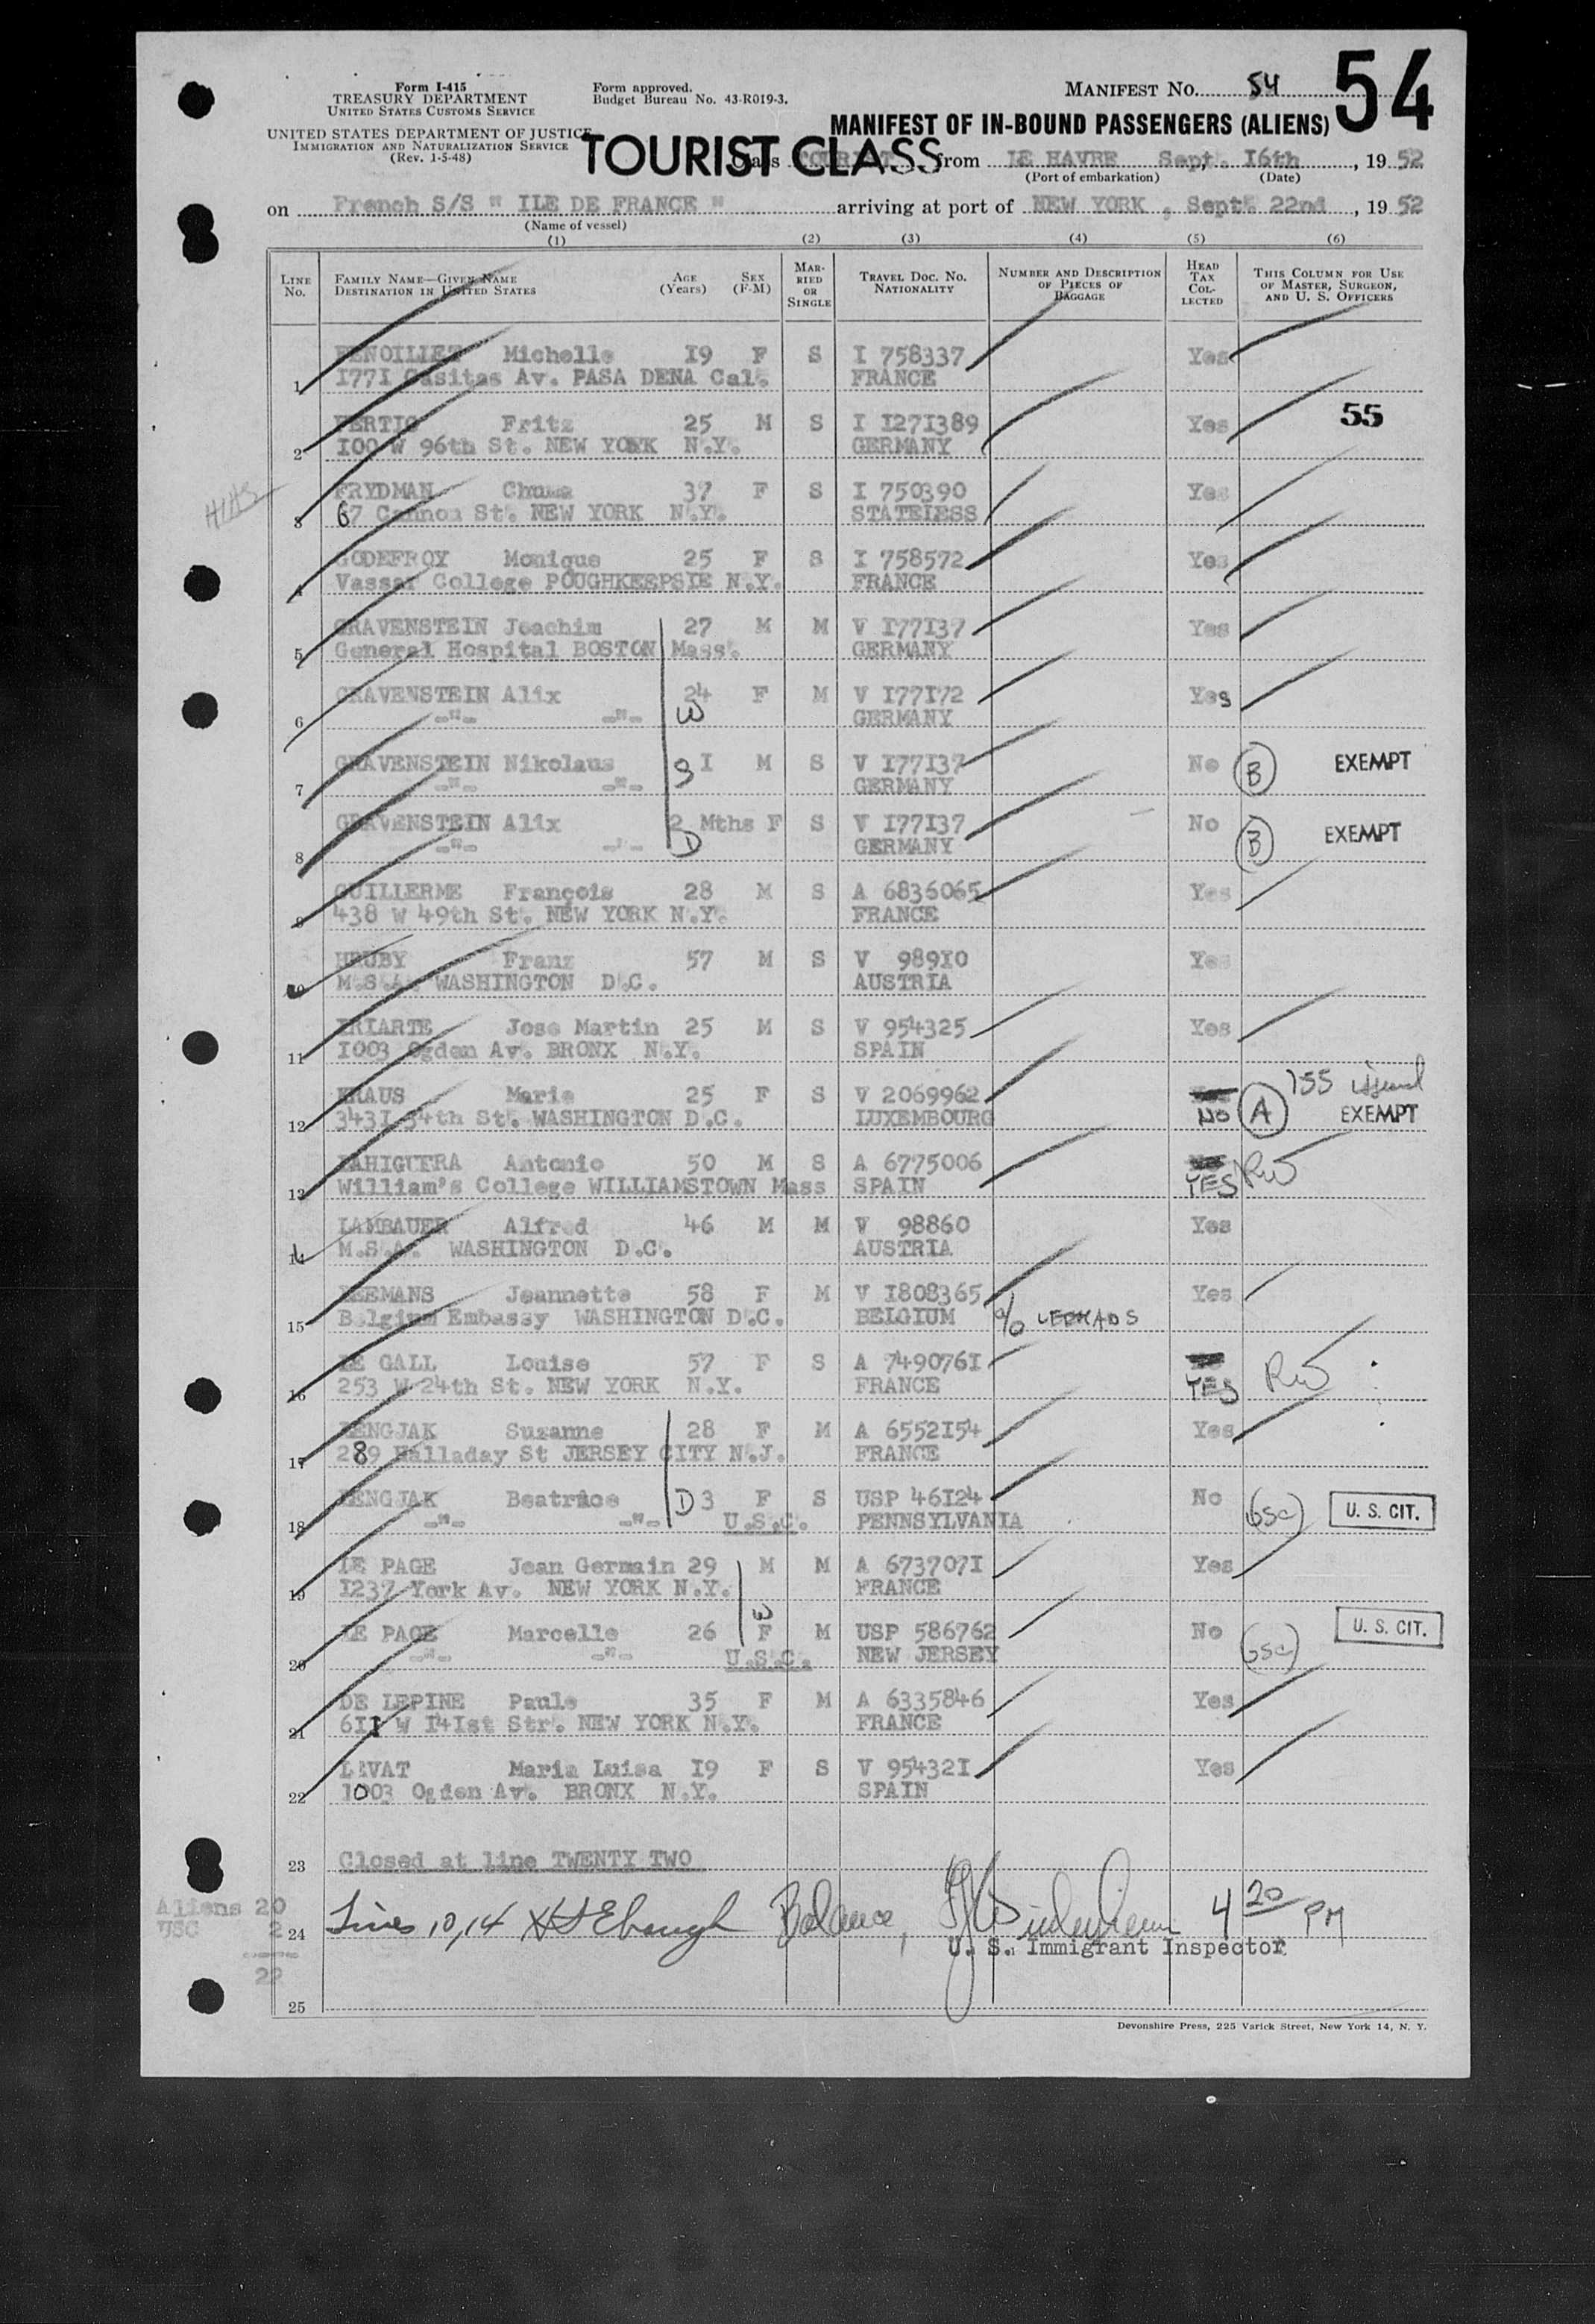 Form I-415
TREASURY DEPARTMENT
UNITED STATES CUSTOMS SERVICE
UNITED STATES DEPARTMENT OF JUSTICE
IMMIGRATION AND NATURALIZATION SERVICE
(Rev. 1-5-48)
Form approved.
Budget Bureau No. 43-R019-3.
MANIFEST NO. 54
54
MANIFEST OF IN-BOUND PASSENGERS (ALIENS)
TOURIST CLASS
Class TOURIST from LE HAVRE Sept. 16th, 19 52
(Port of embarkation) (Date)
on French S/S " ILE DE FRANCE " arriving at port of NEW YORK, Sept. 22nd, 19 52
(Name of vessel)
(1) (2) (3) (4) (5) (6)
LINE NO. FAMILY NAME—GIVEN NAME DESTINATION IN UNITED STATES AGE (Years) SEX (F-M) MARRIED OR SINGLE TRAVEL DOC. NO. NATIONALITY NUMBER AND DESCRIPTION OF PIECES OF BAGGAGE HEAD TAX COLLECTED THIS COLUMN FOR USE OF MASTER, SURGEON, AND U. S. OFFICERS
Michelle 19 F S I 758337 Yes
1 1771 Casitas Av. PASA DENA Cal. FRANCE
FERTIG Fritz 25 M S I 1271389 Yes 55
2 100 W 96th St. NEW YORK N.Y. GERMANY
FRYDMAN Chuma 37 F S I 750390 Yes
3 67 Cannon St. NEW YORK N.Y. STATELESS
GODEFROY Monique 25 F S I 758572 Yes
4 Vassar College POUGHKEEPSIE N.Y. FRANCE
GRAVENSTEIN Joachim 27 M M V 177137 Yes
5 General Hospital BOSTON Mass. GERMANY
GRAVENSTEIN Alix 24 F M V 177172 Yes
6 -"- -"- W GERMANY
GRAVENSTEIN Nikolaus S 1 M S V 177137 No B EXEMPT
7 -"- -"- GERMANY
GRAVENSTEIN Alix 2 Mths F S V 177137 No B EXEMPT
8 -"- -"- D GERMANY
GUILLERME François 28 M S A 6836065 Yes
9 438 W 49th St. NEW YORK N.Y. FRANCE
HRUBY Franz 57 M S V 98910 Yes
10 M.S.A. WASHINGTON D.C. AUSTRIA
IRIARTE Jose Martin 25 M S V 954325 Yes
11 1003 Ogden Av. BRONX N.Y. SPAIN
KRAUS Marie 25 F S V 2069962 NO A 155 issued
12 3431 34th St. WASHINGTON D.C. LUXEMBOURG EXEMPT
LAHIGUERA Antonio 50 M S A 6775006 YES RW
13 William's College WILLIAMSTOWN Mass SPAIN
LAMBAUER Alfred 46 M M V 98860 Yes
14 M.S.A. WASHINGTON D.C. AUSTRIA
LEEMANS Jeannette 58 F M V 1808365 Yes
15 Belgium Embassy WASHINGTON D.C. BELGIUM
LE GALL Louise 57 F S A 7490761 YES RW
16 253 W 24th St. NEW YORK N.Y. FRANCE
LENGJAK Suzanne 28 F M A 6552154 Yes
17 289 Halladay St JERSEY CITY N.J. FRANCE
LENGJAK Beatrice D 3 F S USP 46124 No USC U. S. CIT.
18 -"- -"- U.S.C. PENNSYLVANIA
LE PAGE Jean Germain 29 M M A 6737071 Yes
19 1237 York Av. NEW YORK N.Y. FRANCE
LE PAGE Marcelle 26 F M USP 586762 No USC U. S. CIT.
20 -"- -"- U.S.C. NEW JERSEY
DE LEPINE Paule 35 F M A 6335846 Yes
21 611 W 141st Str. NEW YORK N.Y. FRANCE
LIVAT Maria Luisa 19 F S V 954321 Yes
22 1003 Ogden Av. BRONX N.Y. SPAIN
23 Closed at line TWENTY TWO
Aliens 20
USC 2
22
24 Lines 10, 14 Ebaugh Balance, 4 20 PM
U. S. Immigrant Inspector
25
Devonshire Press, 225 Varick Street, New York 14, N. Y.